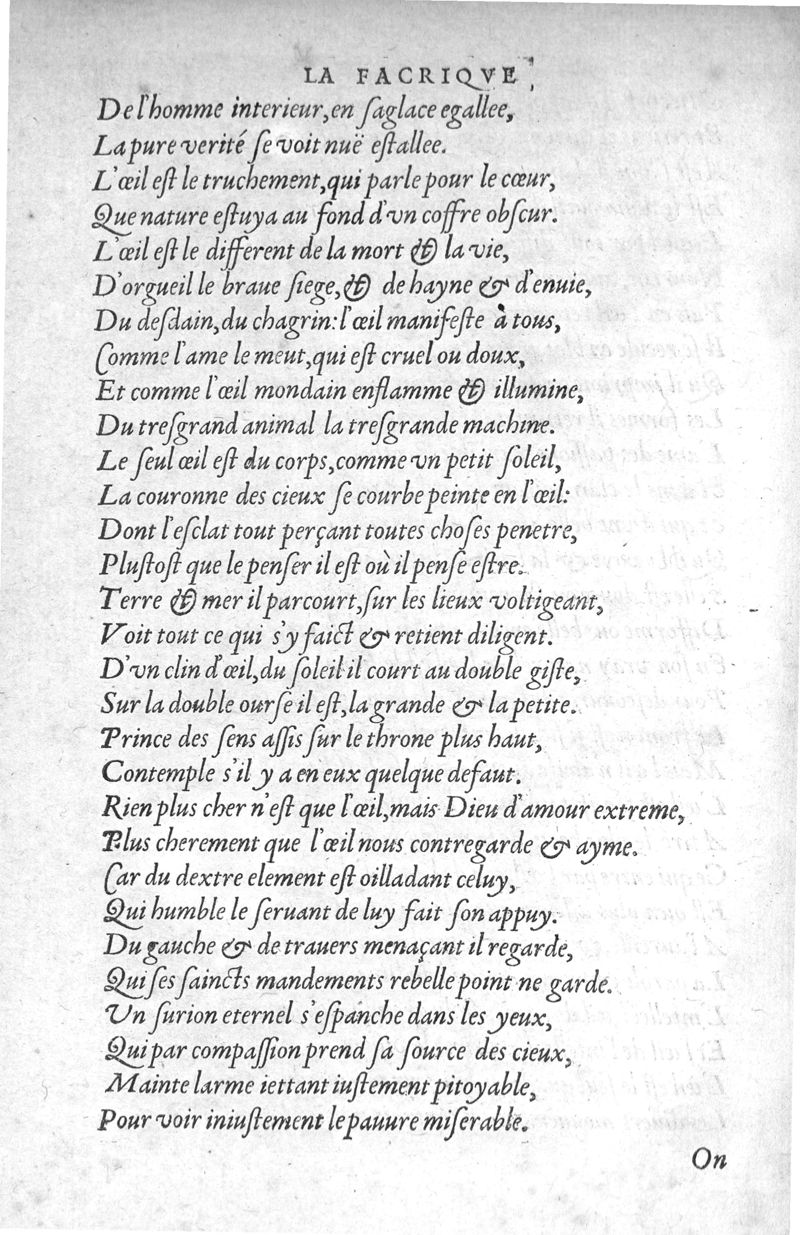 LA FACRIQVE
De l'homme interieur, en sa glace egallee,
La pure verité se voit nuë estallee.
L'œil est le truchement, qui parle pour le cœur,
Que nature estuya au fond d'vn coffre obscur.
L'œil est le different de la mort & la vie,
D'orgueil le braue siege, & de hayne & d'enuie,
Du desdain, du chagrin: l'œil manifeste à tous,
Comme l'ame le meut, qui est cruel ou doux,
Et comme l'œil mondain enflamme & illumine,
Du tresgrand animal la tresgrande machine.
Le seul œil est du corps, comme vn petit soleil,
La couronne des cieux se courbe peinte en l'œil:
Dont l'esclat tout perçant toutes choses penetre,
Plustost que le penser il est où il pense estre.
Terre & mer il parcourt, sur les lieux voltigeant,
Voit tout ce qui s'y faict & retient diligent.
D'vn clin d'œil, du soleil il court au double giste,
Sur la double ourse il est, la grande & la petite.
Prince des sens assis sur le throne plus haut,
Contemple s'il y a en eux quelque defaut.
Rien plus cher n'est que l'œil, mais Dieu d'amour extreme,
Plus cherement que l'œil nous contregarde & ayme.
Car du dextre element est oilladant celuy,
Qui humble le seruant de luy fait son appuy.
Du gauche & de trauers menaçant il regarde,
Qui ses saincts mandements rebelle point ne garde.
Un surion eternel s'espanche dans les yeux,
Qui par compassion prend sa source des cieux,
Mainte larme iettant iustement pitoyable,
Pour voir iniustement le pauure miserable.
On